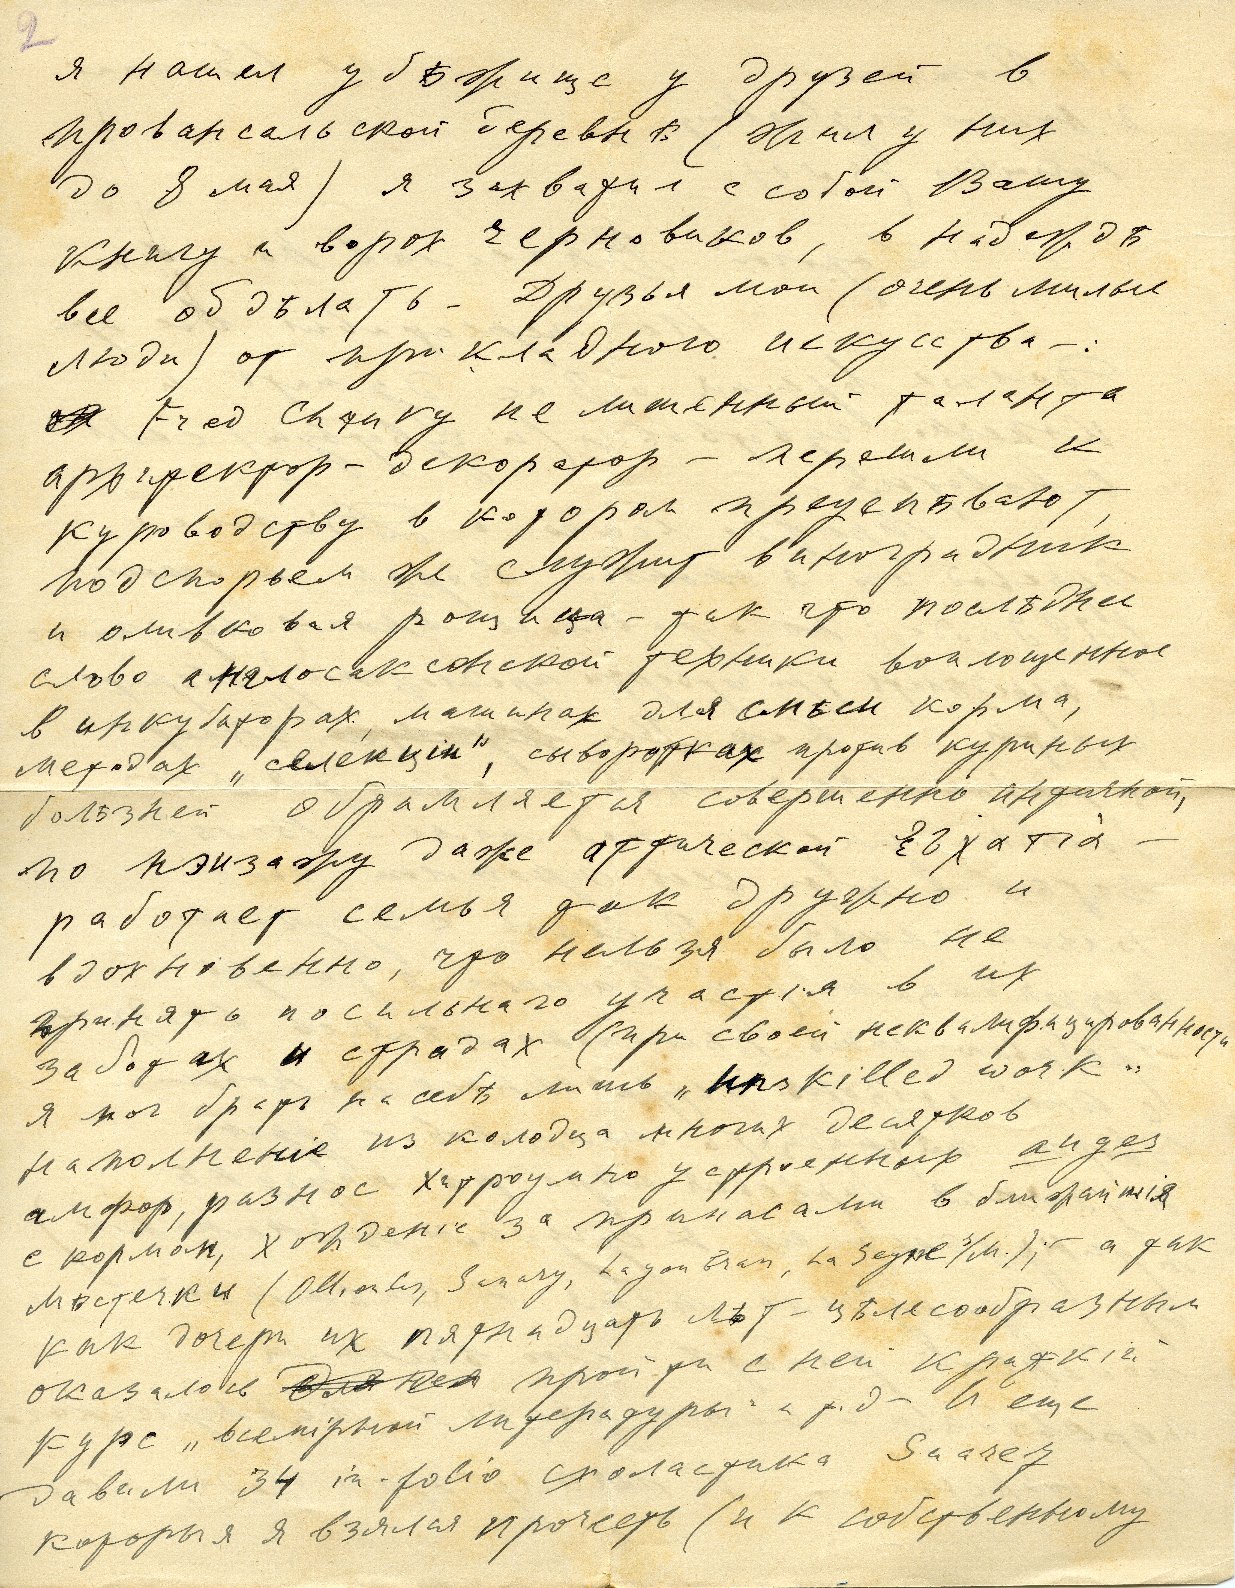 2
я нашел убѣжище у друзей в
провансальской деревнѣ (жил у них
до 8 мая) я захватил с собой Вашу
книгу и ворох черновиков, в надеждѣ
все обдѣлать – Друзья мои (очень милые
люди) от прикладного искусства –:
Fred не лишенный таланта
архитектор – декоратор – перешли к
куроводству в котором преуспѣвают,
подспорьем же служит виноградник
и оливковая рощица – так что послѣднее
слово англосаксонской техники воплощенное
в инкубаторах, машинах для смѣси корма,
методах „селекціи", сыворотках против куриных
болѣзней обрамляется совершенно античной,
по пэизажу даже аттической ἐσχατιὰ –
работает семья так дружно и
вдохновенно, что нельзя было не
принять посильнаго участія в их
заботах и страдах (при своей неквалифицированности
я мог брать на себѣ лишь „unskilled work"
наполненіе из колодца многих десятков
амфор, разнос хитроумно устроенных auges
с кормом, хожденіе за припасами в ближайшія
мѣстечки (Ollioules, Sanary, La Seyne s/M.); – а так
как дочери их пятнадцать лѣт – цѣлесообразным
оказалось пройти с ней краткій
курс „всемірной литературы" и т.д – И еще
давили 34 in-folio схоластика Suarez
которыя я взялся прочесть (и к собственному